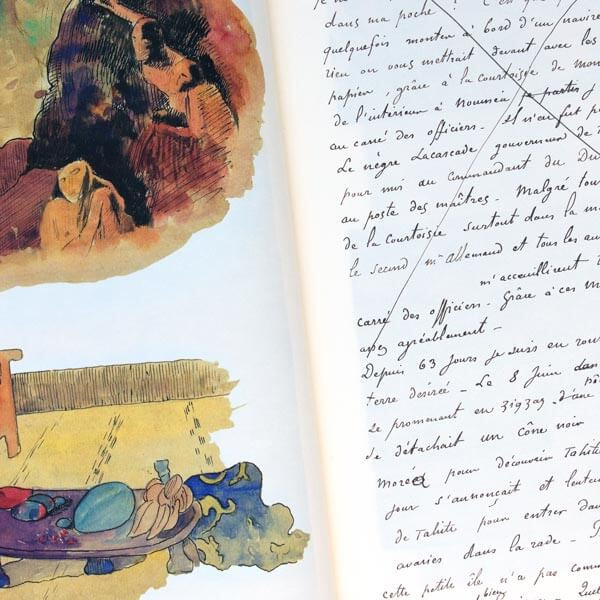 dans ma poche ? C'est que
quelquefois monter à bord d'un navire
rien on vous mettrait devant avec les
papiers, grâce à la courtoisie de mon
de l'intérieur à Nouméa je partis
au carré des officiers - Il n'en fut p
Le nègre Lacascade gouverneur de
pour moi au commandant du Du
au poste des maîtres - Malgré tou
de la courtoisie surtout dans la ma
le second Mr Allemand et tous les au
m'accueillirent
carré des officiers - Grâce à ces m
assez agréablement -
Depuis 63 jours je suis en rou
terre desirée - Le 8 Juin dans
se promenant en zigzag - d'une
se détachait un cône noir
Moréa pour découvrir Tahiti
jour s'annonçait et lenteme
de Tahiti pour entrer dan
avaries dans la rade -
cette petite île n'a pas comm
bien